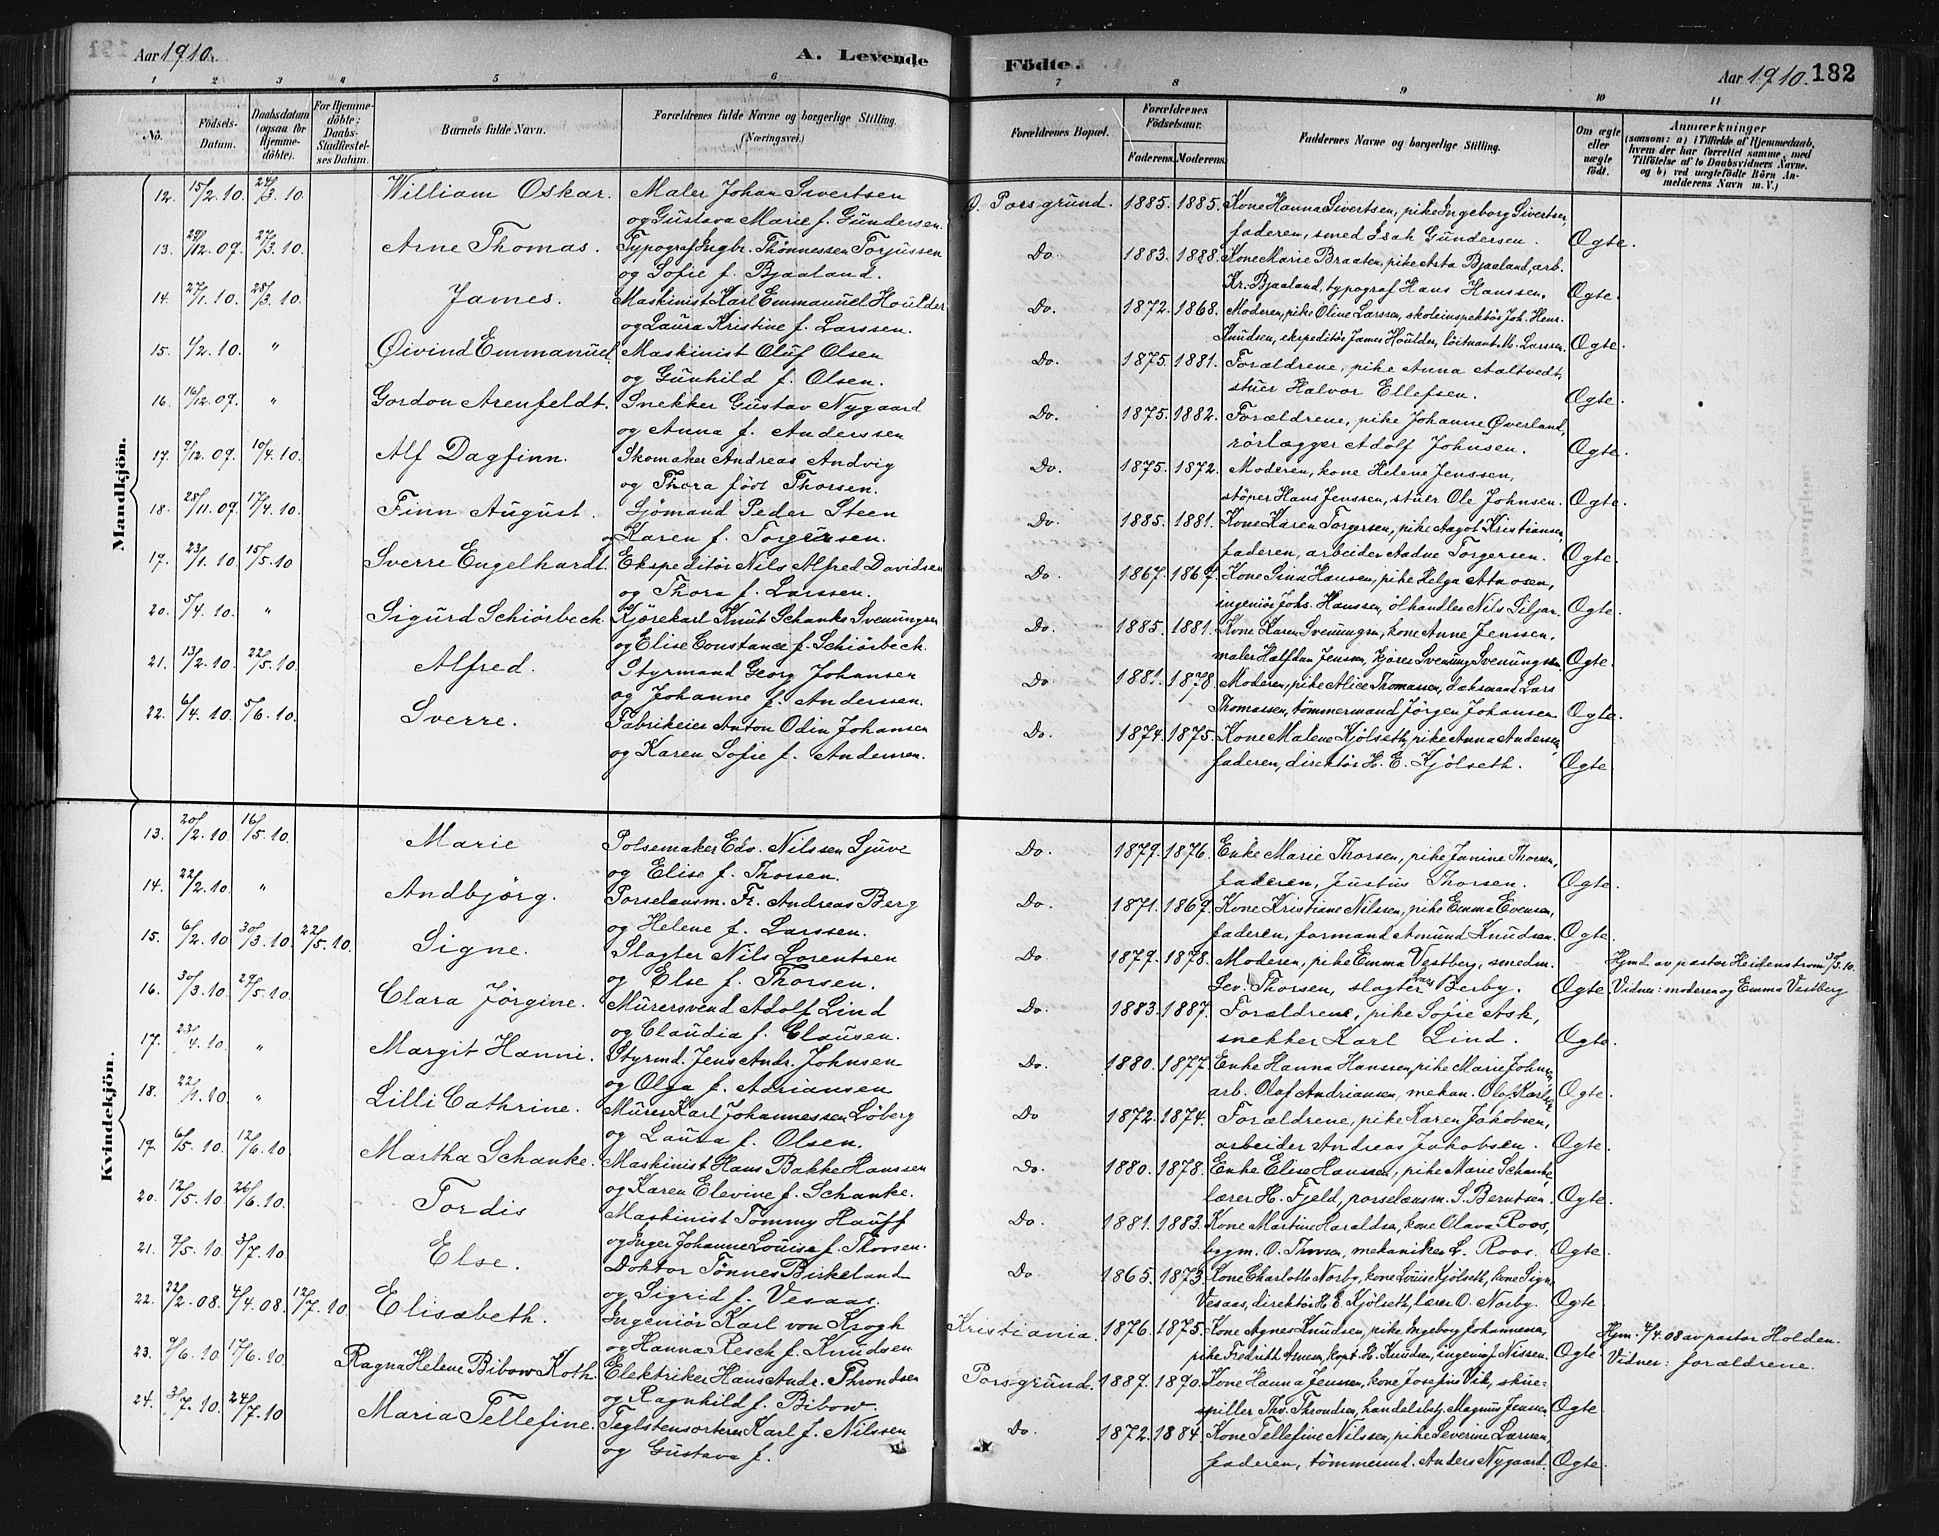 Aar 1910.
A. Levende
Födte.
Aar 1910. 182
1 2 3 4 5 6 7 8 9 10 11
No.
Födsels-Datum.
Daabsdatum (ogsaa for Hjemme-döbte).
For Hjemme-döbte: Daabs-Stadfæstel-ses Datum.
Barnets fulde Navn.
Forældrenes fulde Navne og borgerlige Stilling. (Næringsvei.)
Forældrenes Bopæl.
Forældrenes Födselsaar.
Faderens. Moderens.
Faddernes Navne og borgerlige Stilling.
Om ægte eller uægte födt.
Anmærkninger
(saasom: a) i Tilfælde af Hjemmedaab, hvem der har forrettet samme, med Tilföielse af to Daabsvidners Navne, og b) ved uægtefödte Börn An-melderens Navn m. V.)
Mandkjön.
12. 15/2.10. 24/3.10. William Oskar. Maler Johan Sivertsen Ø. Porsgrund. 1885. 1885. Kone Hanna Sivertsen, pike Ingeborg Sivertsen,
og Gustava Marie f. Gundersen. faderen, smed Isak Gundersen. Ægte.
13. 29/12.09. 27/3.10. Arne Thomas. Typograf Ingbr. Thønnessen Torjussen Do. 1883. 1888. Kone Marie Braaten, pike Asta Bjaaland, arb.
og Sofie f. Bjaaland. Kr. Bjaaland, typograf Hans Hanssen. Ægte.
14. 27/1.10. 28/3.10. James. Maskinist Karl Emmanuel Houlder Do. 1872. 1868. Moderen, pike Oline Larssen, skoleinspektør Joh. Henr.
og Laura Kristine f. Larssen. Knudsen, ekspeditör James Houlder, löitnant M. Larssen. Ægte.
15. 6/2.10. " Øivind Emmanuel. Maskinist Oluf Olsen Do. 1875. 1881. Forældrene, pike Anna Aaltvedt,
og Gunhild f. Olsen. stuer Halvor Ellefsen. Ægte.
16. 16/12.09. " Gordon Arenfeldt. Snekker Gustav Nygaard Do. 1875. 1882. Forældrene, pike Johanne Øverland,
og Anna f. Anderssen rörlægger Adolf Johnsen. Ægte.
17. 9/12.09. 10/4.10. Alf Dagfinn. Skomaker Andreas Andvig Do. 1875. 1872. Moderen, kone Helene Jenssen,
og Thora födt Thorsen. stöper Hans Jenssen, stuer Ole Johnsen. Ægte.
18. 28/11.09. 17/4.10. Finn August. Sjömand Peder Steen Do. 1885. 1881. Kone Karen Torgersen, pike Aagot Kristiansen,
og Karen f. Torgersen. faderen, arbeider Aadne Torgersen. Ægte.
19. 23/1.10. 15/5.10 Sverre Engelhardt. Ekspeditör Nils Alfred Davidsen Do. 1867. 1869. Kone Sina Hansen, pike Helga
og Thora f. Larssen. ingeniör Johs. Hanssen, ölhandler Nils Siljan. Ægte.
20. 5/4.10. " Sigurd Schiörbeck. Kjørekarl Knut Schanke Svenungsen Do. 1885. 1881. Kone Karen Svenungsen, kone Anne Jenssen,
og Elise Constance f. Schiörbeck. maler Halfdan Jenssen, kjörer Svenung Svenungsen. Ægte.
21. 13/2.10. 22/5.10. Alfred. Styrmand Georg Johansen Do. 1881. 1878. Moderen, pike Alice Thomassen, dæksmand Lars
og Johanne f. Anderssen. Thomassen, tömmermand Jörgen Johansen Ægte.
22. 6/4.10. 5/6.10. Sverre. Fabrikeier Anton Odin Johansen Do. 1874. 1875. Kone Malene Kjölseth, pike Anna Andersen,
og Karen Sofie f. Andersen. faderen, direktör H. E. Kjölseth. Ægte
Kvindekjön.
13. 20/2.10. 16/5.10. Marie Pölsemaker Edv. Nilssen Ljuve Do. 1879. 1876. Enke Marie Thorsen, pike Janine Thorsen,
og Elise f. Thorsen. faderen, Justus Thorsen. Ægte.
14. 22/2.10. " Andbjörg. Porselænsm. Fr. Andreas Berg Do. 1871. 1869. Kone Kristiane Nilssen, pike Emma Evensen,
og Helene f. Larssen. faderen, formand Amund Knudsen. Ægte.
15. 6/2.10 30/3.10. 22/5.10. Signe. Slagter Nils Lorentsen Do. 1879. 1878. Moderen, pike Emma Vestberg, smedm. Hjmd. av pastor Heifenstrom 30/3.10.
og Else f. Thorsen. Sev. Thorsen, slagter Lars Berby. Ægte. Vidner: moderen og Emma Vestberg
16. 30/3.10. 29/5.10. Clara Jörgine. Murersvend Adolf Lind Do. 1883. 1887. Forældrene, pike Sofie Ask,
og Claudia f. Clausen. snekker Karl Lind. Ægte.
17. 23/4.10. " Margit Hanni. Styrmd. Jens Andr. Johnsen Do. 1880. 1877. Enke Hanna Hanssen, pike Marie Johnsen,
og Olga f. Adriansen arb. Olaf Andriansen, mekan. Olaf Karlsen Ægte.
18. 22/1.10. " Lilli Cathrine. Murer Karl Johannessen Löberg Do 1872. 1874. Forældrene, pike Karen Jakobsen,
og Laura f. Olsen. arbeider Andreas Jakobsen. Ægte.
19. 6/5.10. 12/6.10. Martha Schanke. Maskinist Hans Bakke Hanssen Do. 1880. 1878. Enke Elise Hanssen, pike Marie Schanke,
og Karen Elevine f. Schanke. lærer H. Fjeld, porselænsm. S. Berntsen. Ægte.
20. 12/5.10. 26/6.10. Tordis Maskinist Tommy Hauff Do. 1881. 1883. Kone Martine Haraldsen, kone Olava Roos,
og Inger Johanne Louise f. Thorsen. bygm. O. Thorsen, mekaniker L. Roos. Ægte.
21. 9/5.10. 3/7.10 Else. Doktor Tönnes Birkeland Do 1865. 1873. Kone Charlotte Norby, kone Louise Kjölseth, kone Signe
og Sigrid f. Vesaas. Vesaas, direktör H. E. Kjölseth, lærer O. Norby. Ægte.
22. 22/2.08. 4/4.08. 12/7.10. Elisabeth. Ingeniör Karl von Krogh Kristiania. 1876. 1875. Kone Agnes Knudsen, pike Ingeborg Johannesen, Hjm. 4/4.08 av pastor Holden.
og Hanna Resch f. Knudsen pike Fredrikke kapt. H. Knudsen, ingeniör J. Nissen. Ægte. Vidner: forældrene.
23. 9/6.10. 17/6.10. Ragna Helene Bibow Koth. Elektriker Hans Andr. Throndsen Porsgrund. 1889. 1890. Kone Hanna Jenssen, kone Josefine Vik, skue-
og Ragnhild f. Bibow. spiller Thv. Throndsen, handelsbetj. Magnus Jensen. Ægte.
24. 3/7.10. 24/7.10 Maria Tellefine. Teglstensorterer Karl J. Nilssen Do. 1872. 1884. Kone Tellefine Nilssen, pike Severine Larsen,
og Gustava f. faderen, tömmermd. Anders Nygaard. Ægte.